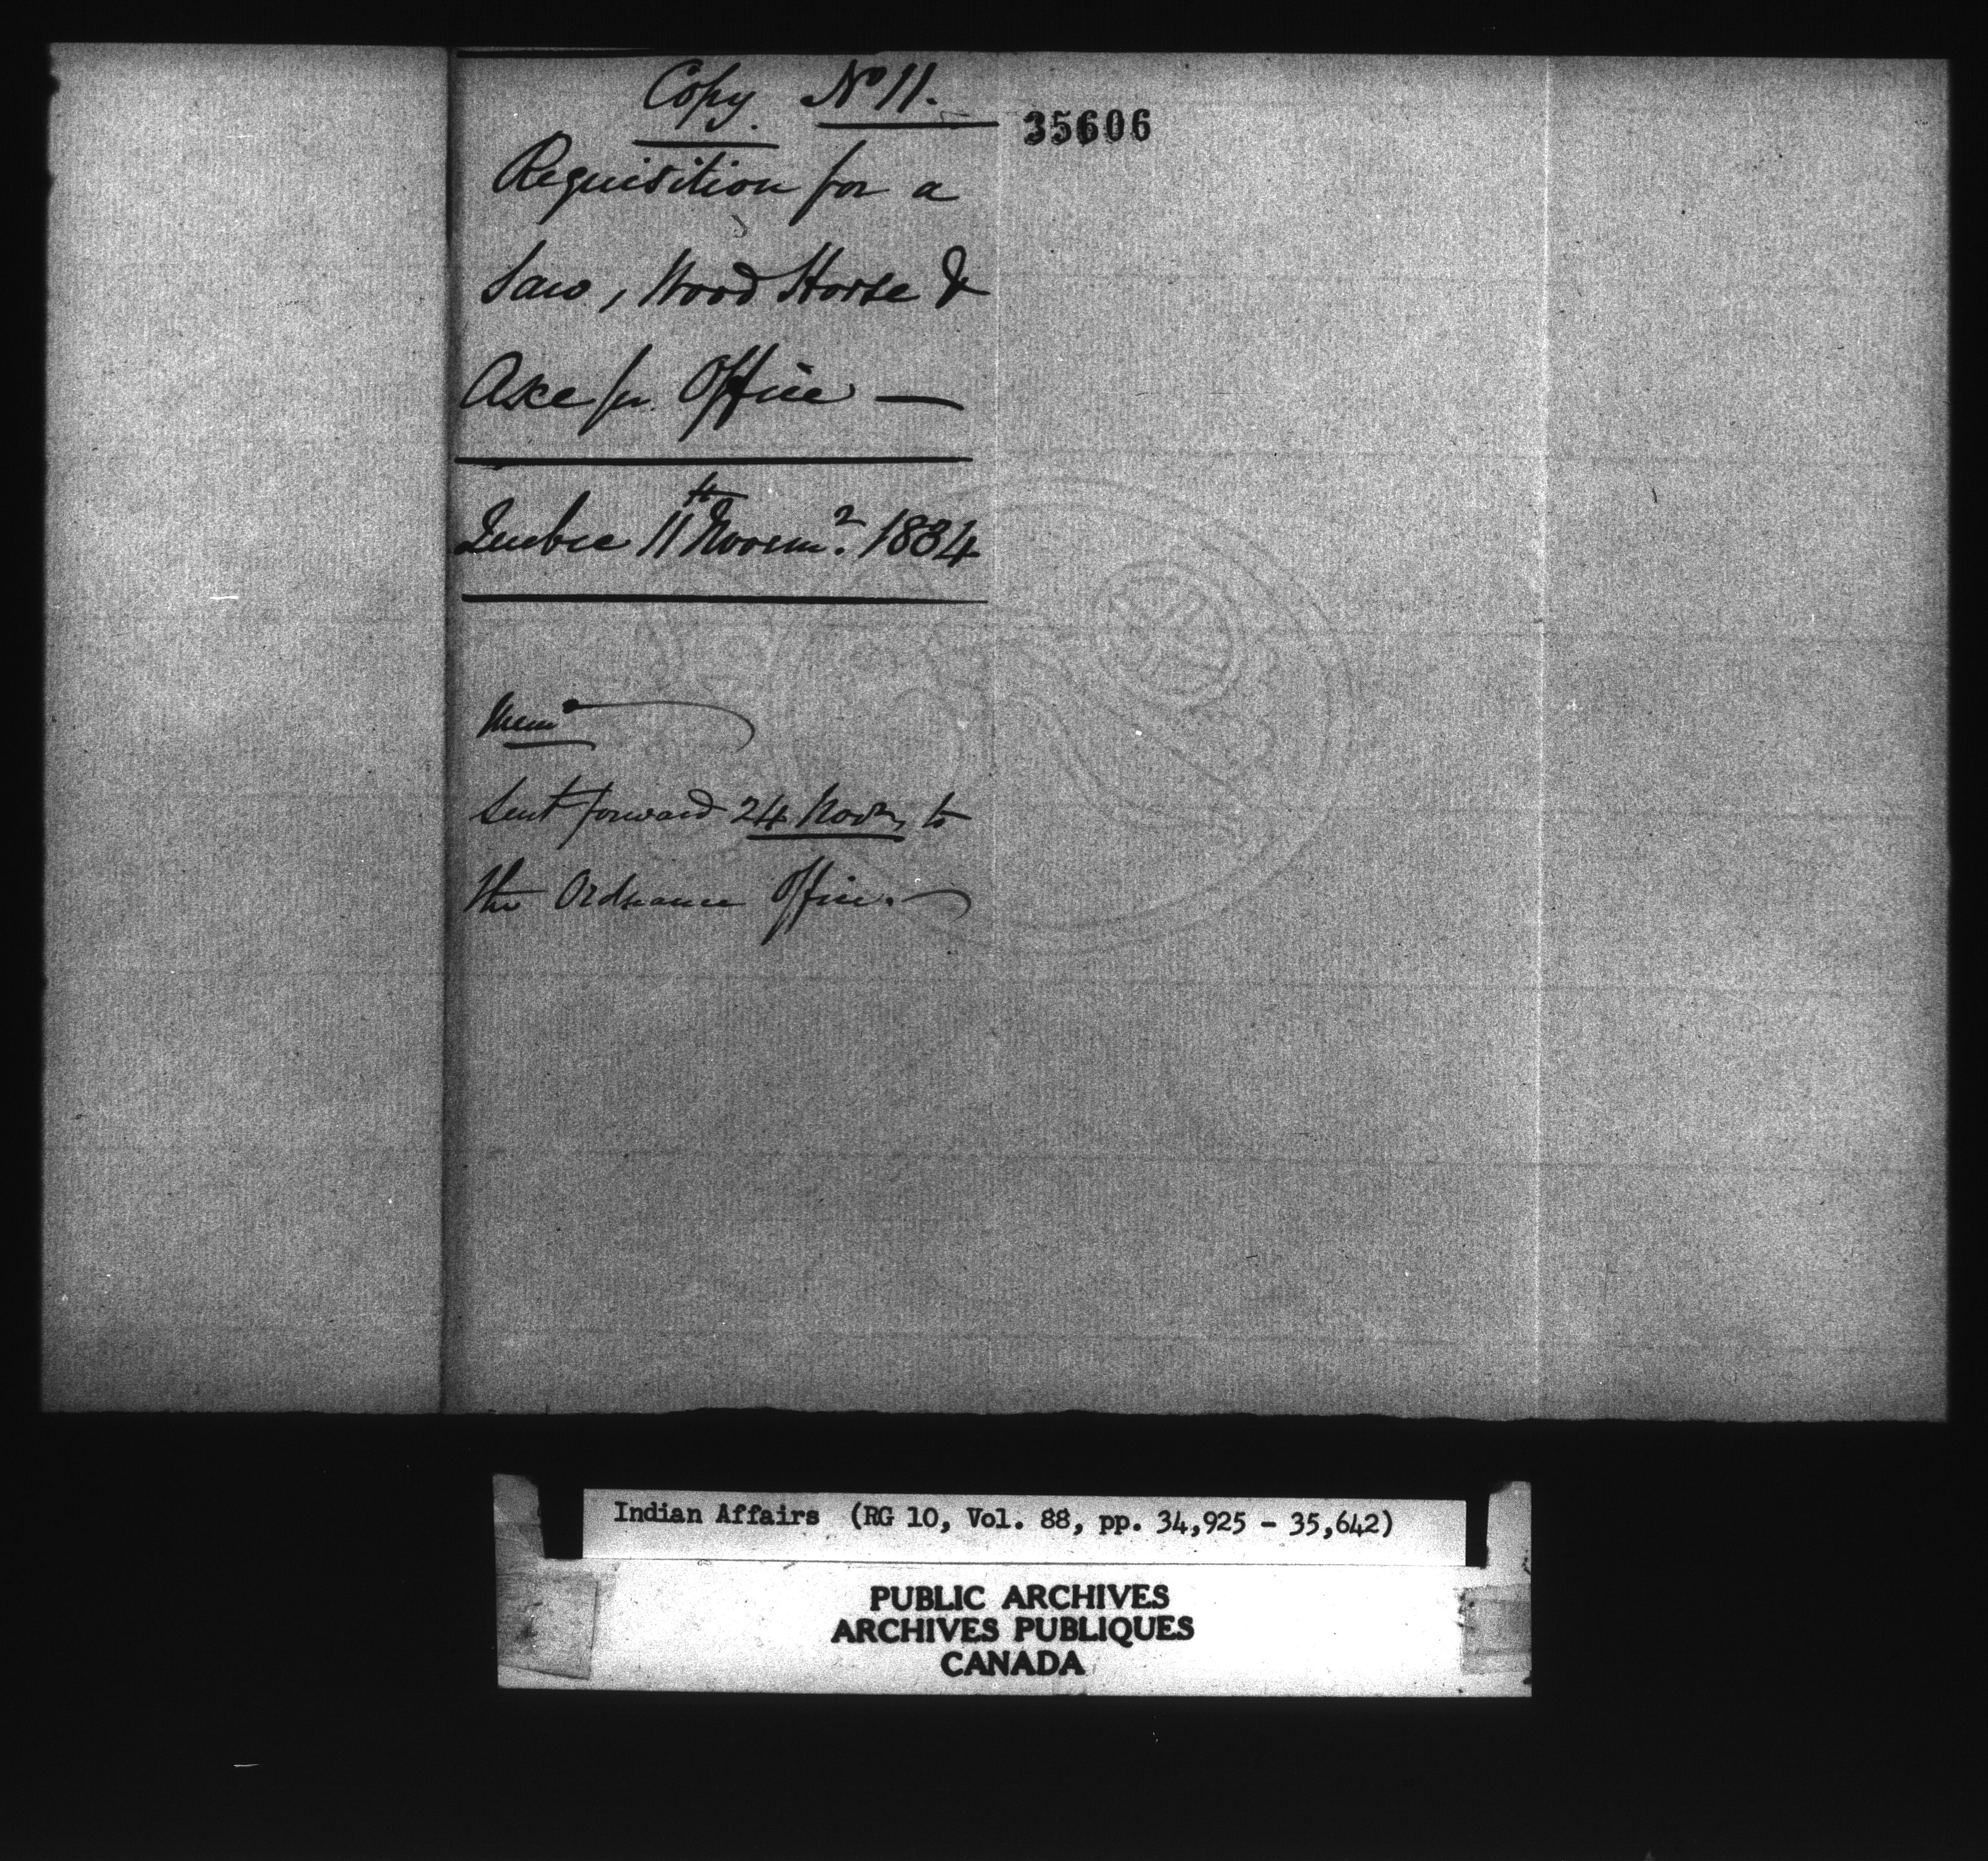 Copy. No 11.
35606
Requisition for a
Saw, Wood Horse &
Axe for Office —
Quebec 11th Novemr. 1834
Memo
Sent forward 24 Novr, to
the Ordnance Office.
Indian Affairs (RG 10, Vol. 88, pp. 34,925 - 35,642)
PUBLIC ARCHIVES
ARCHIVES PUBLIQUES
CANADA